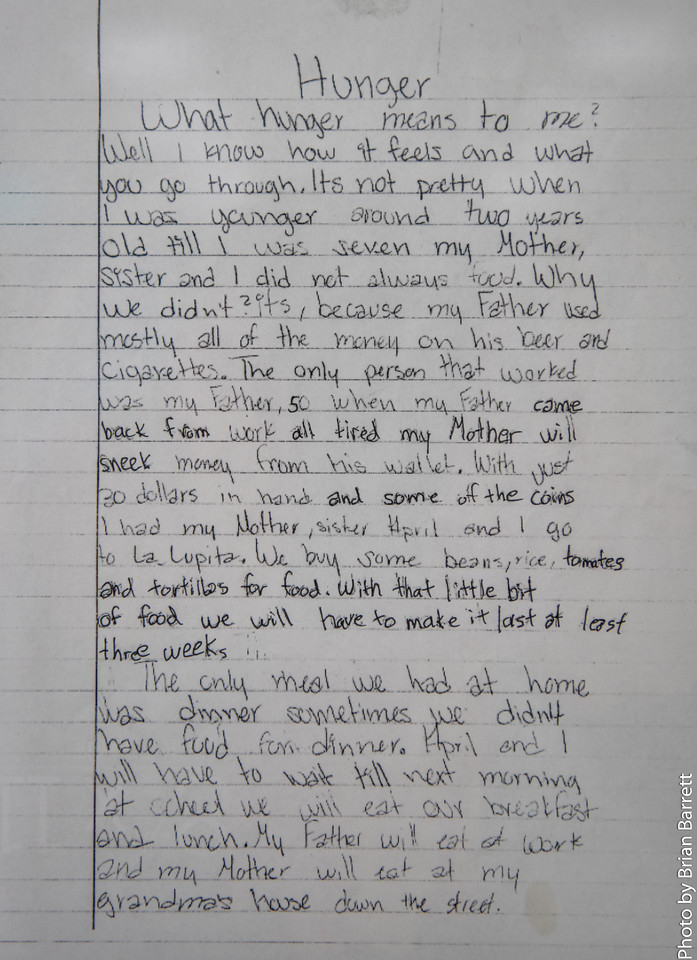 Hunger
What hunger means to me?
Well I know how it feels and what
you go through. Its not pretty when
I was younger around two years
old till I was seven my Mother,
sister and I did not always food. Why
we didn't? its, because my Father used
mostly all of the money on his beer and
Cigarettes. The only person that worked
was my Father, so when my Father came
back from work all tired my Mother will
sneek money from his wallet. With just
20 dollars in hand and some off the coins
I had my Mother, sister April and I go
to La Lupita. We buy some beans, rice, tomates
and tortillas for food. With that little bit
of food we will have to make it last at least
three weeks
The only meal we had at home
was dinner sometimes we didn't
have food for dinner. April and I
will have to wait till next morning
at school we will eat our breakfast
and lunch. My Father will eat at work
and my Mother will eat at my
grandma's house down the street.
Photo by Brian Barrett